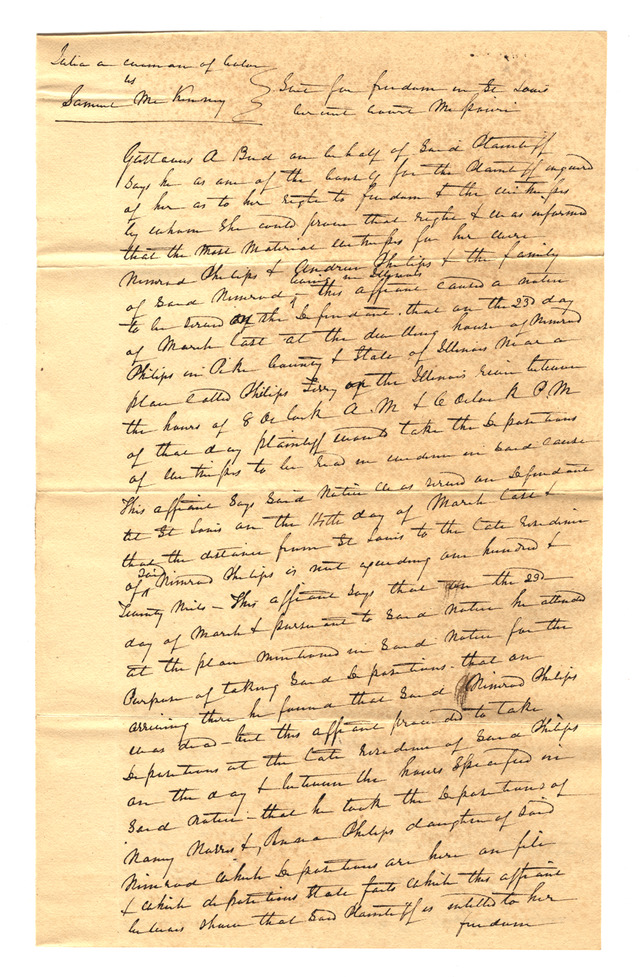 Julia a woman of Color
vs
Samuel McKinney
Suit for freedom in St Louis
circuit court Missouri
Gustavus A Bird on behalf of Said Plaintiff
Says he as one of the counsel for the Plaintiff inquired
of her as to her right to freedom & the witnesses
by whom She could prove that right & was informed
that the most Material witnesses for her were
Nimrod Philips & Andrew Philips & the family
of Said Nimrod living in Illinois this affiant caused a notice
to be served on the Defendant that on the 23d day
of March last at the dwelling house of Nimrod
Philips in Pike County & State of Illinois near a
place called Philips Ferry on the Illinois River between
the hours of 8 Oclock A.M & 6 Oclock P M
of that day plaintiff would take the Depositions
of witnesses to be read in evidence in Said cause
This affiant Says Said Notice was served on Defendant
at St Louis on the 14th day of March last &
that the distance from St Louis to the late residence
of Said Nimrod Philips is not exceeding one hundred &
Twenty Miles - This affiant Says that on the 23d
day of March & pursuant to Said Notice he attended
at the place mentioned in Said Notice for the
Purpose of taking Said Depositions. that on
arriving there he found that Said Nimrod Philips
was dead - but this affiant proceeded to take
Depositions at the late residence of Said Philips
on the day & between the hours Specified in
Said notice - that he took the Depositions of
Nancy Norris & Philips daughter of Said
Nimrod which Depositions are here on file
& which depositions State facts which this affiant
believes show that Said Plaintiff is intitled to her
freedom